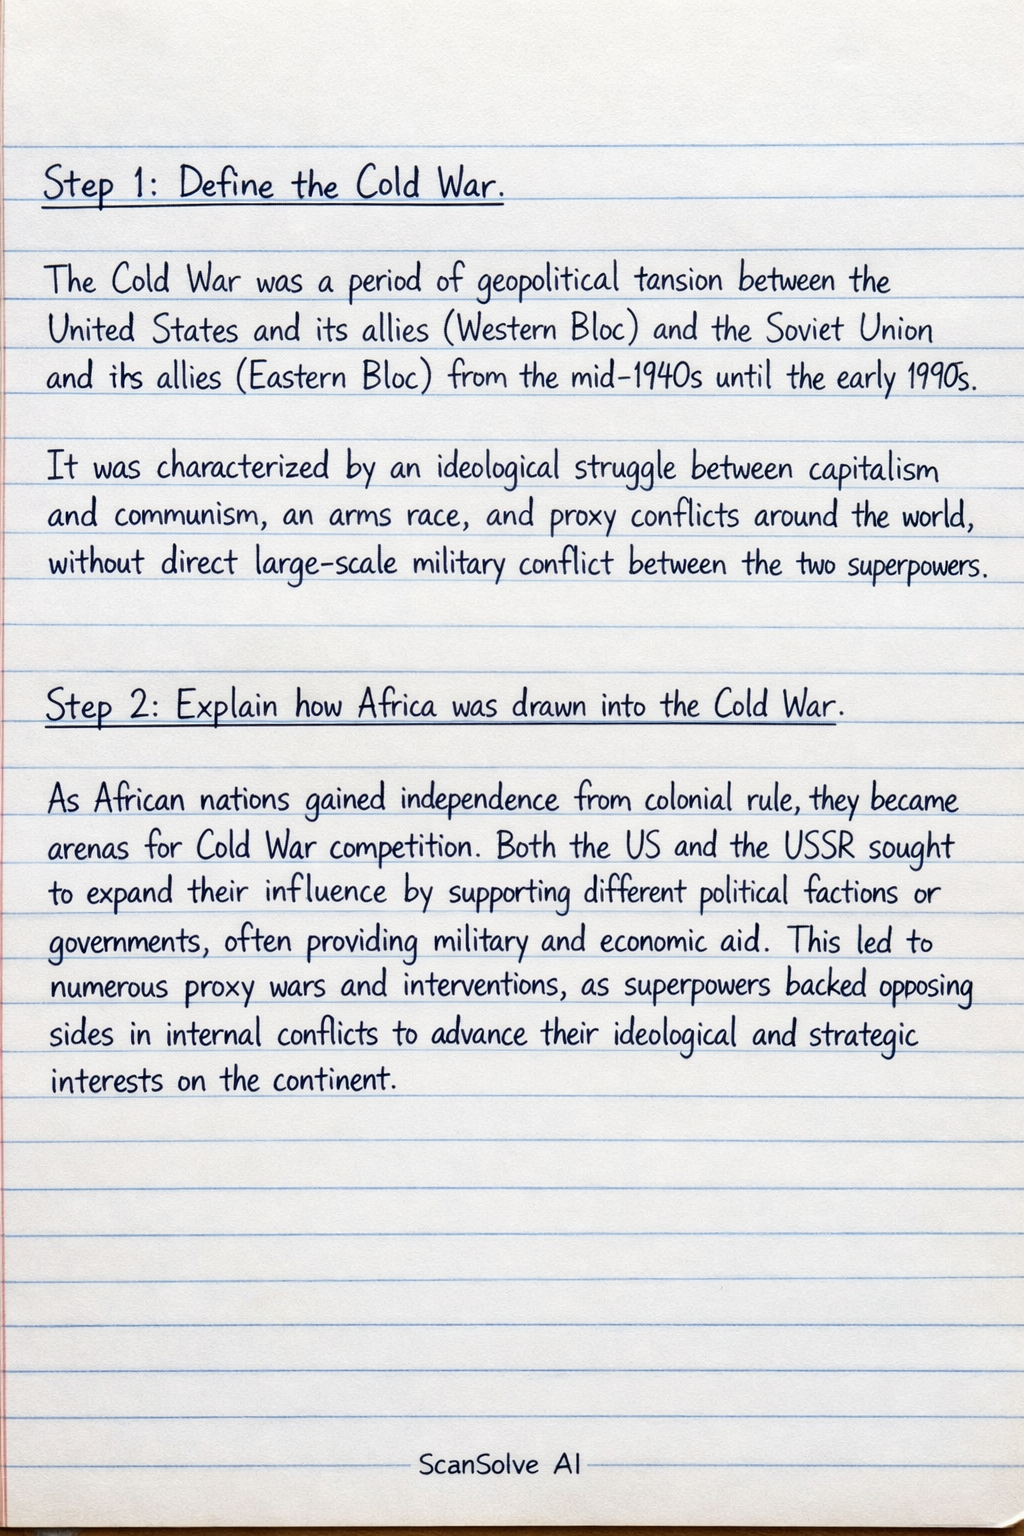 Step 1: Define the Cold War.
The Cold War was a period of geopolitical tansion between the
United States and its allies (Western Bloc) and the Soviet Union
and its allies (Eastern Bloc) from the mid-1940s until the early 1990s.
It was characterized by an ideological struggle between capitalism
and communism, an arms race, and proxy conflicts around the world,
without direct large-scale military conflict between the two superpowers.
Step 2: Explain how Africa was drawn into the Cold War.
As African nations gained independence from colonial rule, they became
arenas for Cold War competition. Both the US and the USSR sought
to expand their influence by supporting different political factions or
governments, often providing military and economic aid. This led to
numerous proxy wars and interventions, as superpowers backed opposing
sides in internal conflicts to advance their ideological and strategic
interests on the continent.
ScanSolve AI